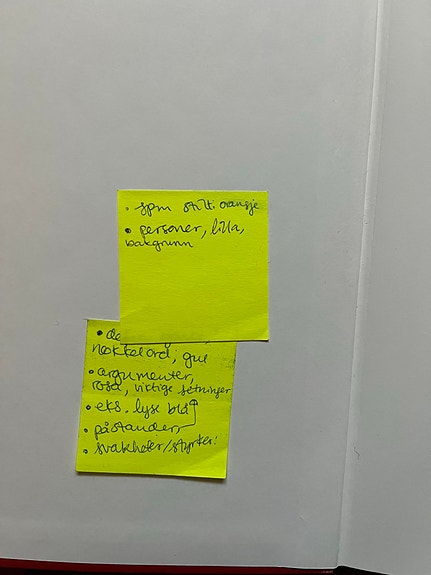 • spm stilt: orange
• personer, lilla,
bakgrunn
• de
nøkkelord; gul
• argumenter,
rosa, viktige setninger
• eks. lyse blå
• påstander
• svakheter/styrker: